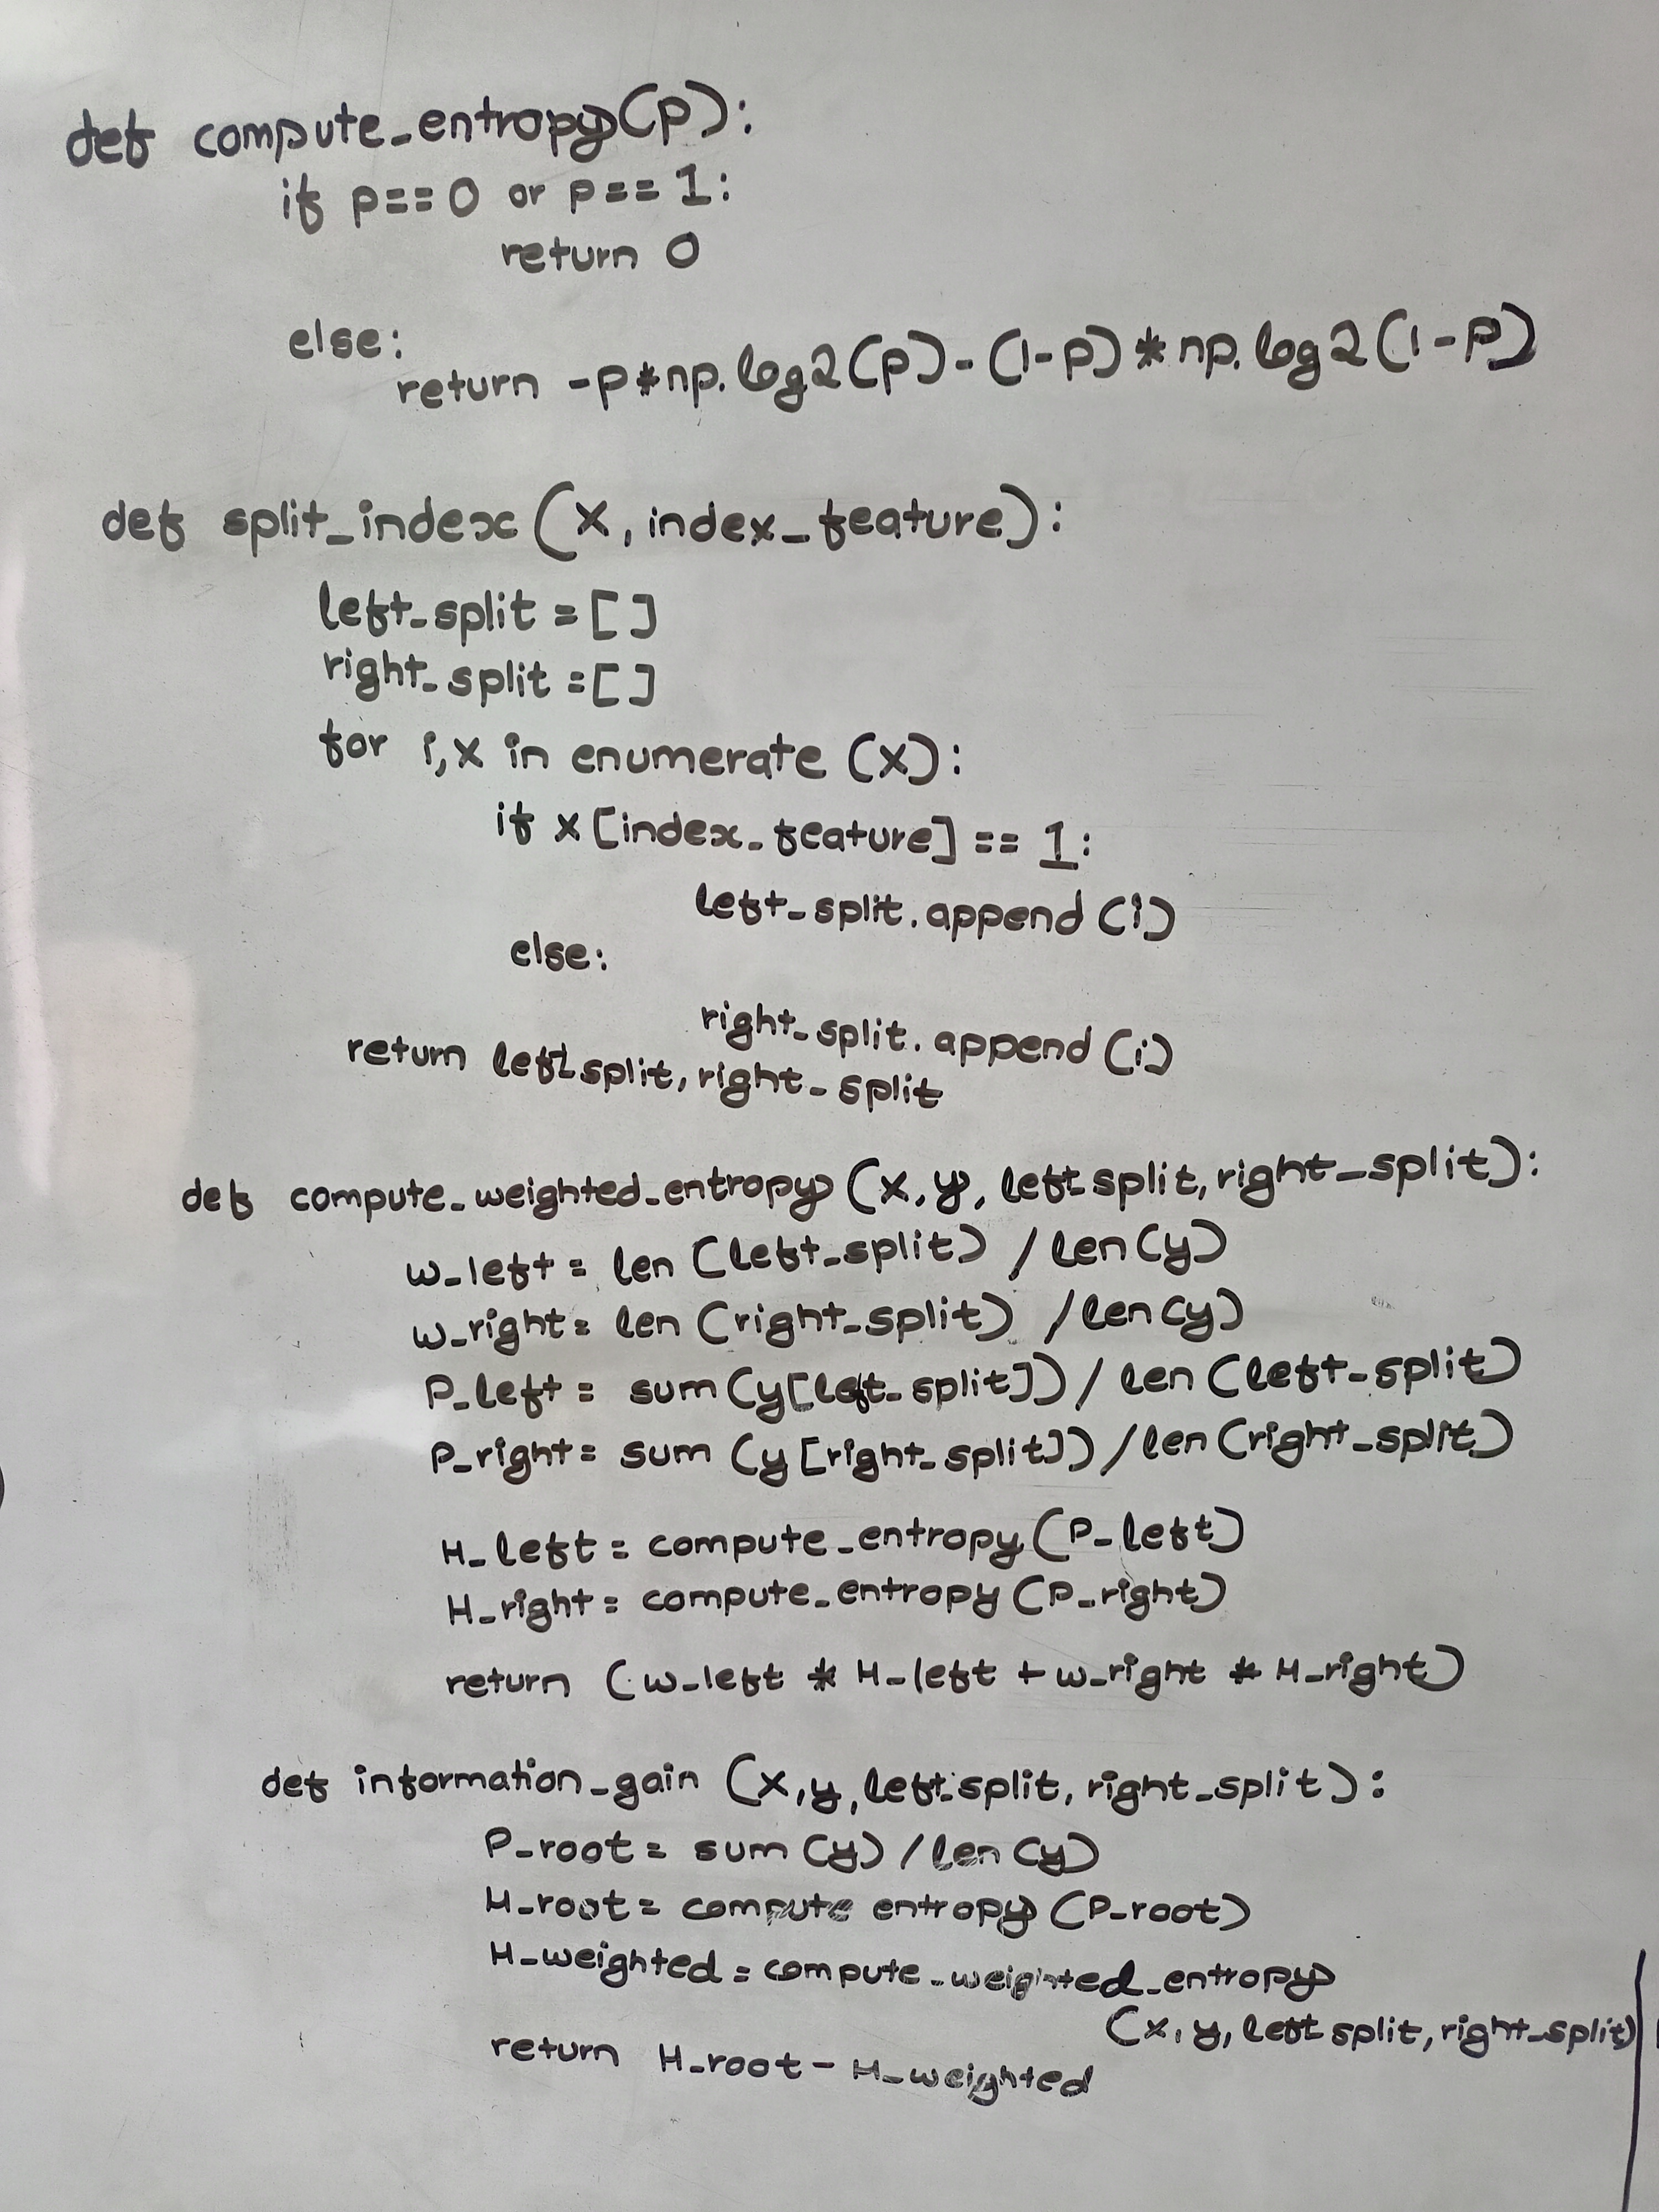 def compute_entropy(p):
if p==0 or p==1:
return 0
else:
return -p*np.log2(p)-(1-p)*np.log2(1-p)
def split_index(X, index_feature):
left_split = []
right_split = []
for i,x in enumerate (X):
if x [index_feature] == 1:
left_split.append (i)
else:
right_split.append (i)
return left_split, right_split
def compute_weighted_entropy (X, y, left_split, right_split):
w_left = len (left_split) / len (y)
w_right = len (right_split) / len (y)
P_left = sum (y[left_split]) / len (left_split)
P_right = sum (y [right_split]) / len (right_split)
H_left = compute_entropy (P_left)
H_right = compute_entropy (P_right)
return (w_left * H_left + w_right * H_right)
def information_gain (X,y, left_split, right_split):
P_root = sum (y) / len (y)
H_root = compute entropy (P_root)
H_weighted = compute_weighted_entropy
(X, y, left split, right_split)
return H_root - H_weighted